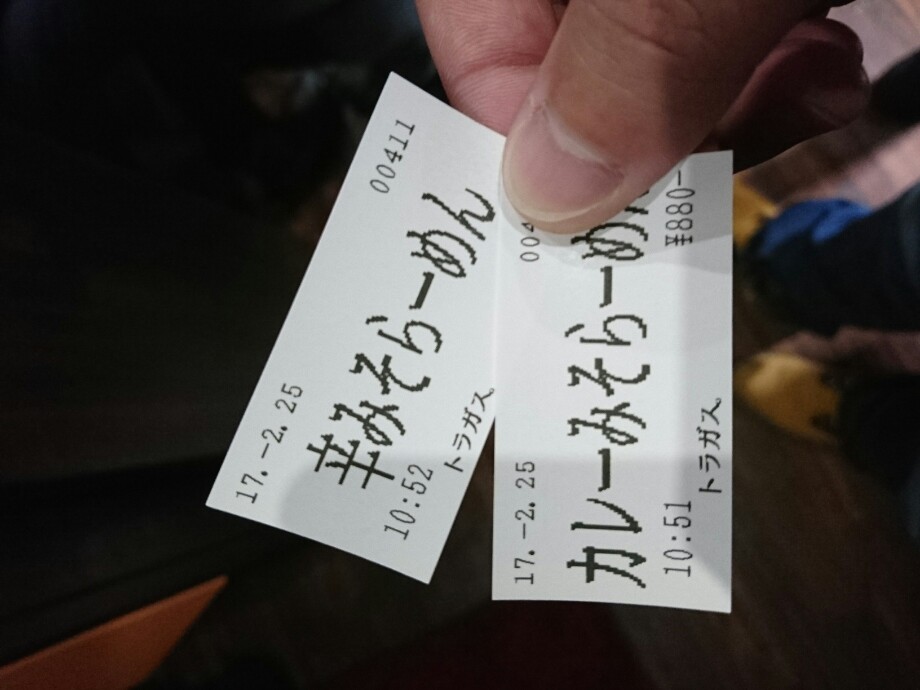 17.-2.25 00411
辛みそらーめん
10:52
トラガス
17.-2.25 004
カレーみそらーめん
10:51 ¥880-
トラガス